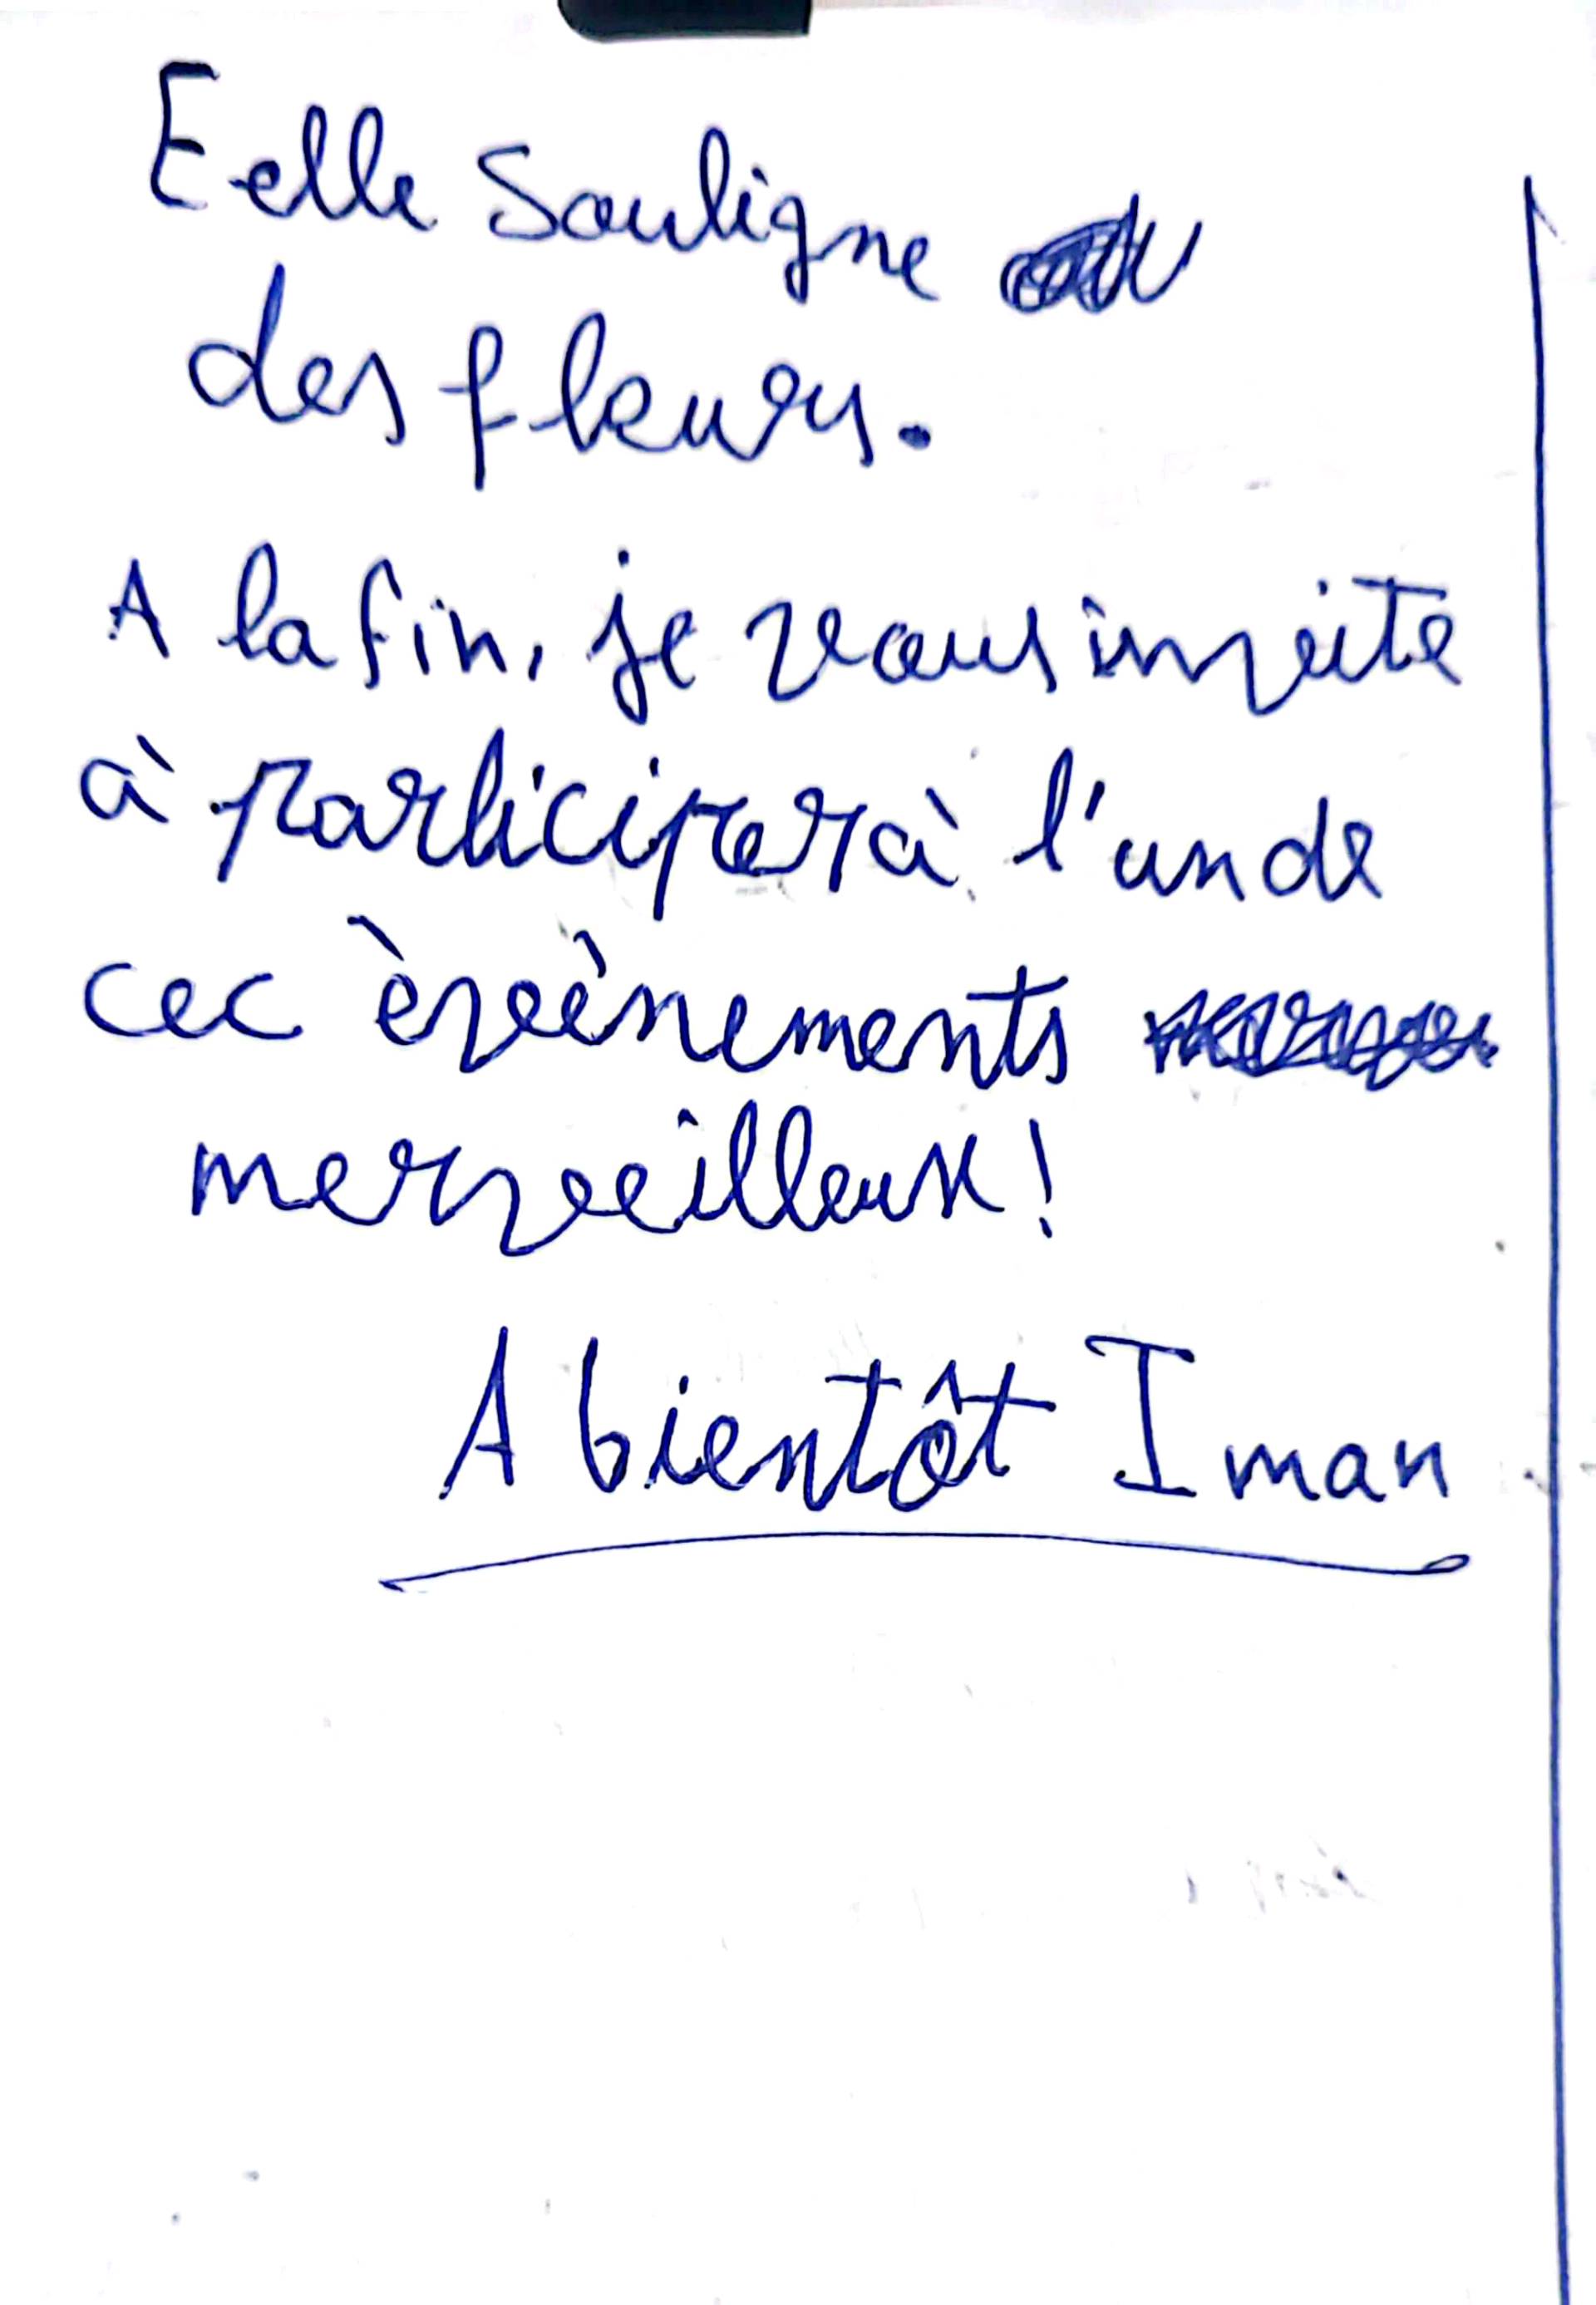 Eelle souligne
des fleurs.
A la fin, je vous invite
à participer à l'un de
cec èvènements
merveilleux!
A bientôt Iman